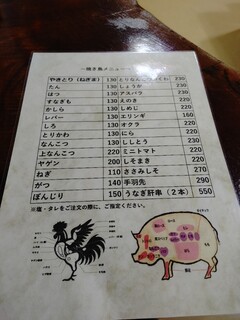 ～焼き鳥メニュー～
やきとり（ねぎま） 130 とりなんこつつくね 230
たん 130 しょうが 230
はつ 130 アスパラ 230
すなぎも 130 えのき 220
かしら 130 しめじ 220
レバー 130 エリンギ 160
しろ 130 オクラ 220
とりかわ 130 にら 220
なんこつ 130 ししとう 220
上なんこつ 220 ミニトマト 220
ヤゲン 200 しそまき 220
ねぎ 110 ささみしそ 270
がつ 140 手羽先 290
ぼんじり 150 うなぎ肝串（２本） 550
※塩・タレをご注文の際に、ご指定ください。